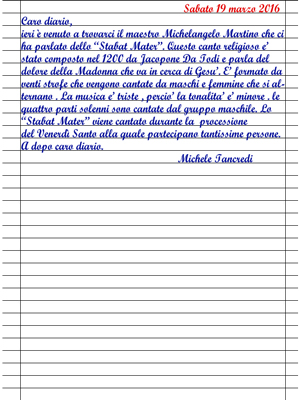 Sabato 19 marzo 2016
Caro diario,
ieri è venuto a trovarci il maestro Michelangelo Martino che ci
ha parlato dello “Stabat Mater”. Questo canto religioso e’
stato composto nel 1200 da Jacopone Da Todi e parla del
dolore della Madonna che va in cerca di Gesu’. E’ formato da
venti strofe che vengono cantate da maschi e femmine che si al-
ternano . La musica e’ triste , percio’ la tonalita’ e’ minore . le
quattro parti solenni sono cantate dal gruppo maschile. Lo
“Stabat Mater” viene cantato durante la processione
del Venerdì Santo alla quale partecipano tantissime persone.
A dopo caro diario.
Michele Tancredi